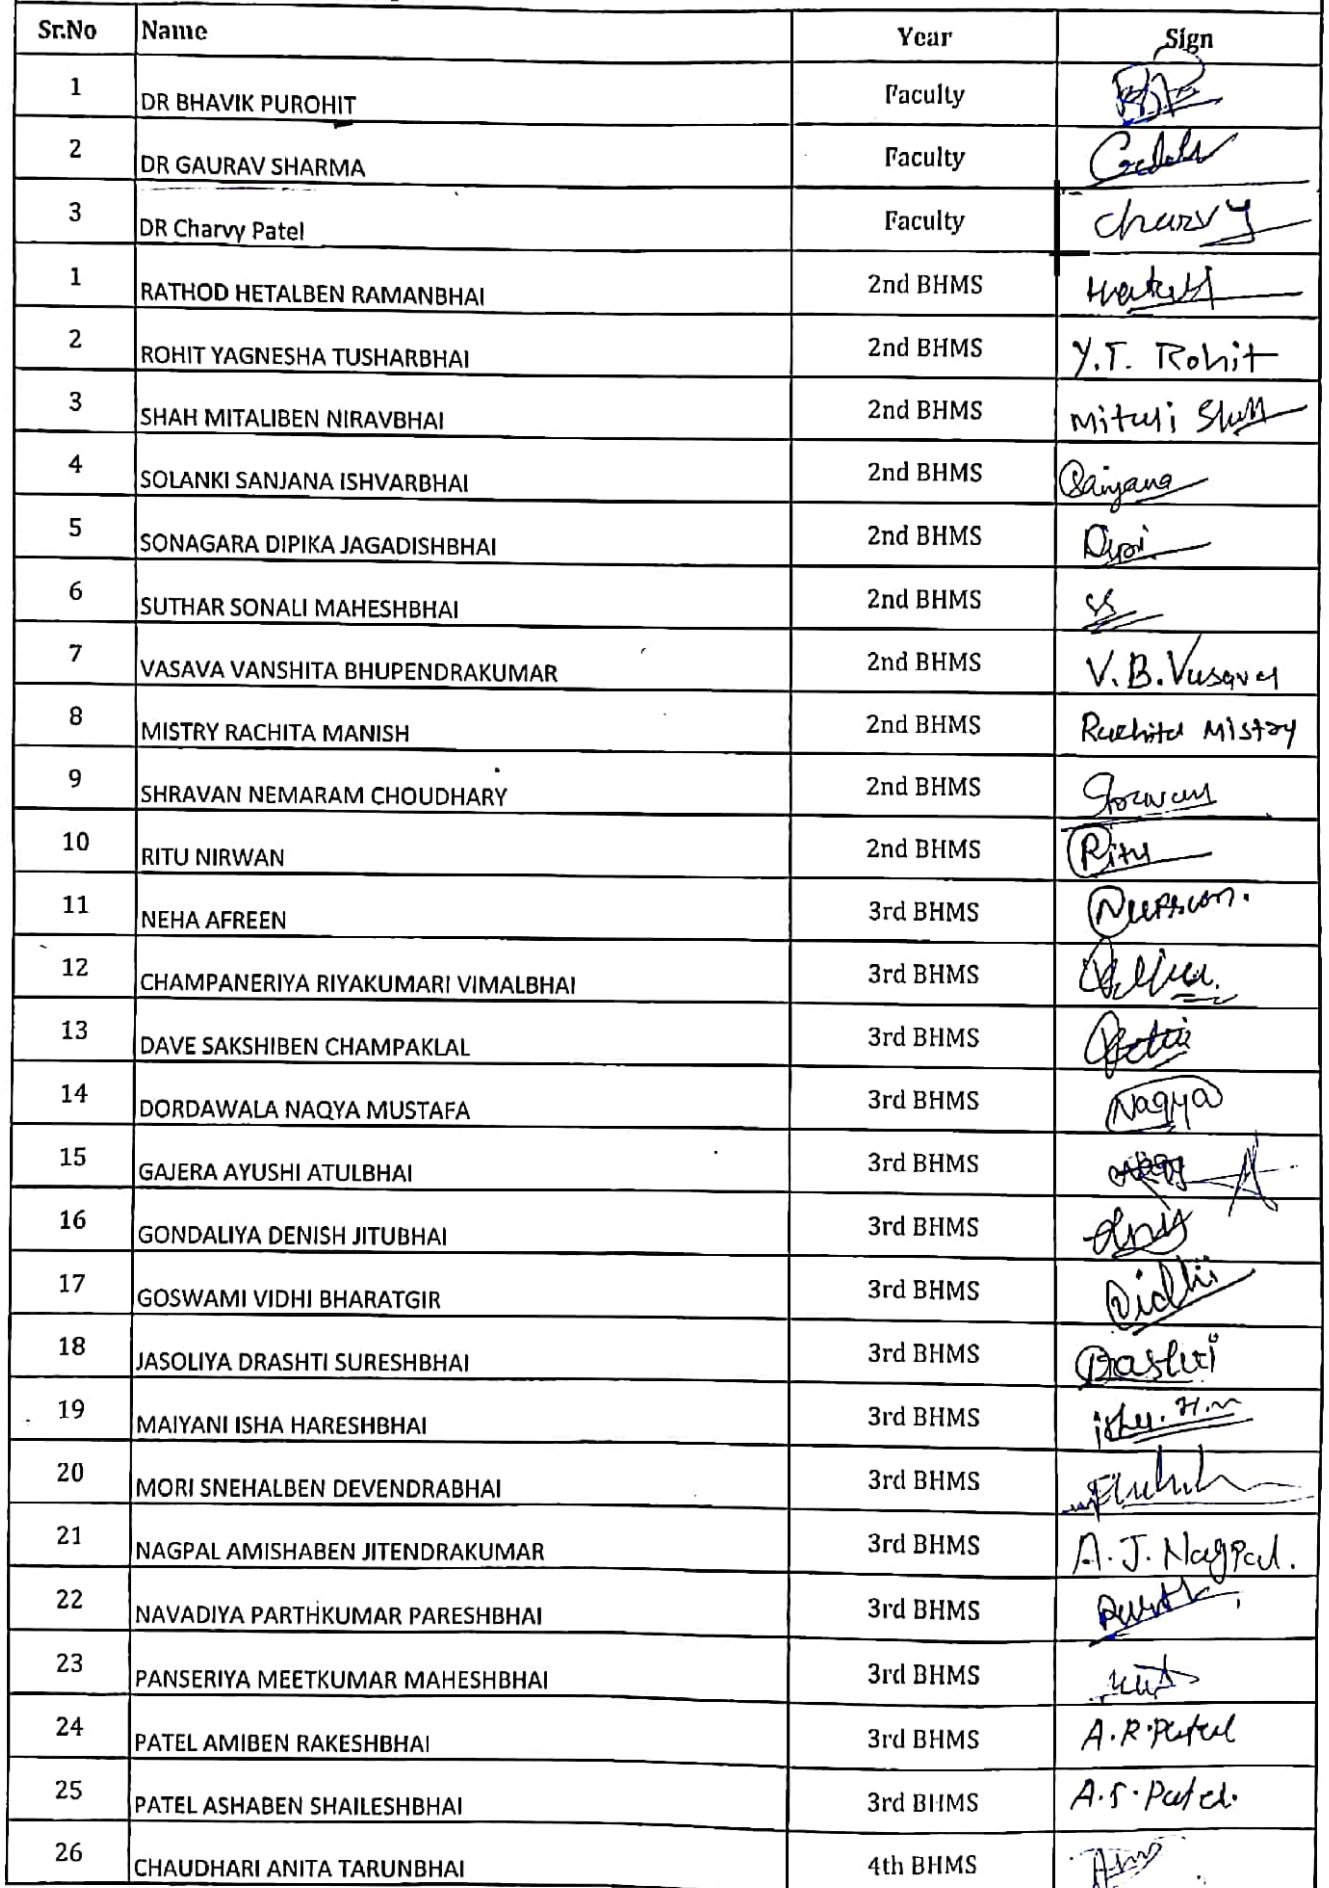 Sr.No Name Year Sign
1 DR BHAVIK PUROHIT Faculty
2 DR GAURAV SHARMA Faculty
3 DR Charvy Patel Faculty Charvy
1 RATHOD HETALBEN RAMANBHAI 2nd BHMS
2 ROHIT YAGNESHA TUSHARBHAI 2nd BHMS Y.T. Rohit
3 SHAH MITALIBEN NIRAVBHAI 2nd BHMS
4 SOLANKI SANJANA ISHVARBHAI 2nd BHMS Sanjana
5 SONAGARA DIPIKA JAGADISHBHAI 2nd BHMS
6 SUTHAR SONALI MAHESHBHAI 2nd BHMS
7 VASAVA VANSHITA BHUPENDRAKUMAR 2nd BHMS V.B.Vasava
8 MISTRY RACHITA MANISH 2nd BHMS Rachita Mistry
9 SHRAVAN NEMARAM CHOUDHARY 2nd BHMS
10 RITU NIRWAN 2nd BHMS Ritu
11 NEHA AFREEN 3rd BHMS
12 CHAMPANERIYA RIYAKUMARI VIMALBHAI 3rd BHMS
13 DAVE SAKSHIBEN CHAMPAKLAL 3rd BHMS
14 DORDAWALA NAQYA MUSTAFA 3rd BHMS Naqya
15 GAJERA AYUSHI ATULBHAI 3rd BHMS
16 GONDALIYA DENISH JITUBHAI 3rd BHMS
17 GOSWAMI VIDHI BHARATGIR 3rd BHMS Vidhi
18 JASOLIYA DRASHTI SURESHBHAI 3rd BHMS
19 MAIYANI ISHA HARESHBHAI 3rd BHMS
20 MORI SNEHALBEN DEVENDRABHAI 3rd BHMS
21 NAGPAL AMISHABEN JITENDRAKUMAR 3rd BHMS A.J. Nagpal.
22 NAVADIYA PARTHKUMAR PARESHBHAI 3rd BHMS
23 PANSERIYA MEETKUMAR MAHESHBHAI 3rd BHMS
24 PATEL AMIBEN RAKESHBHAI 3rd BHMS A.R.Patel
25 PATEL ASHABEN SHAILESHBHAI 3rd BHMS A.S.Patel.
26 CHAUDHARI ANITA TARUNBHAI 4th BHMS